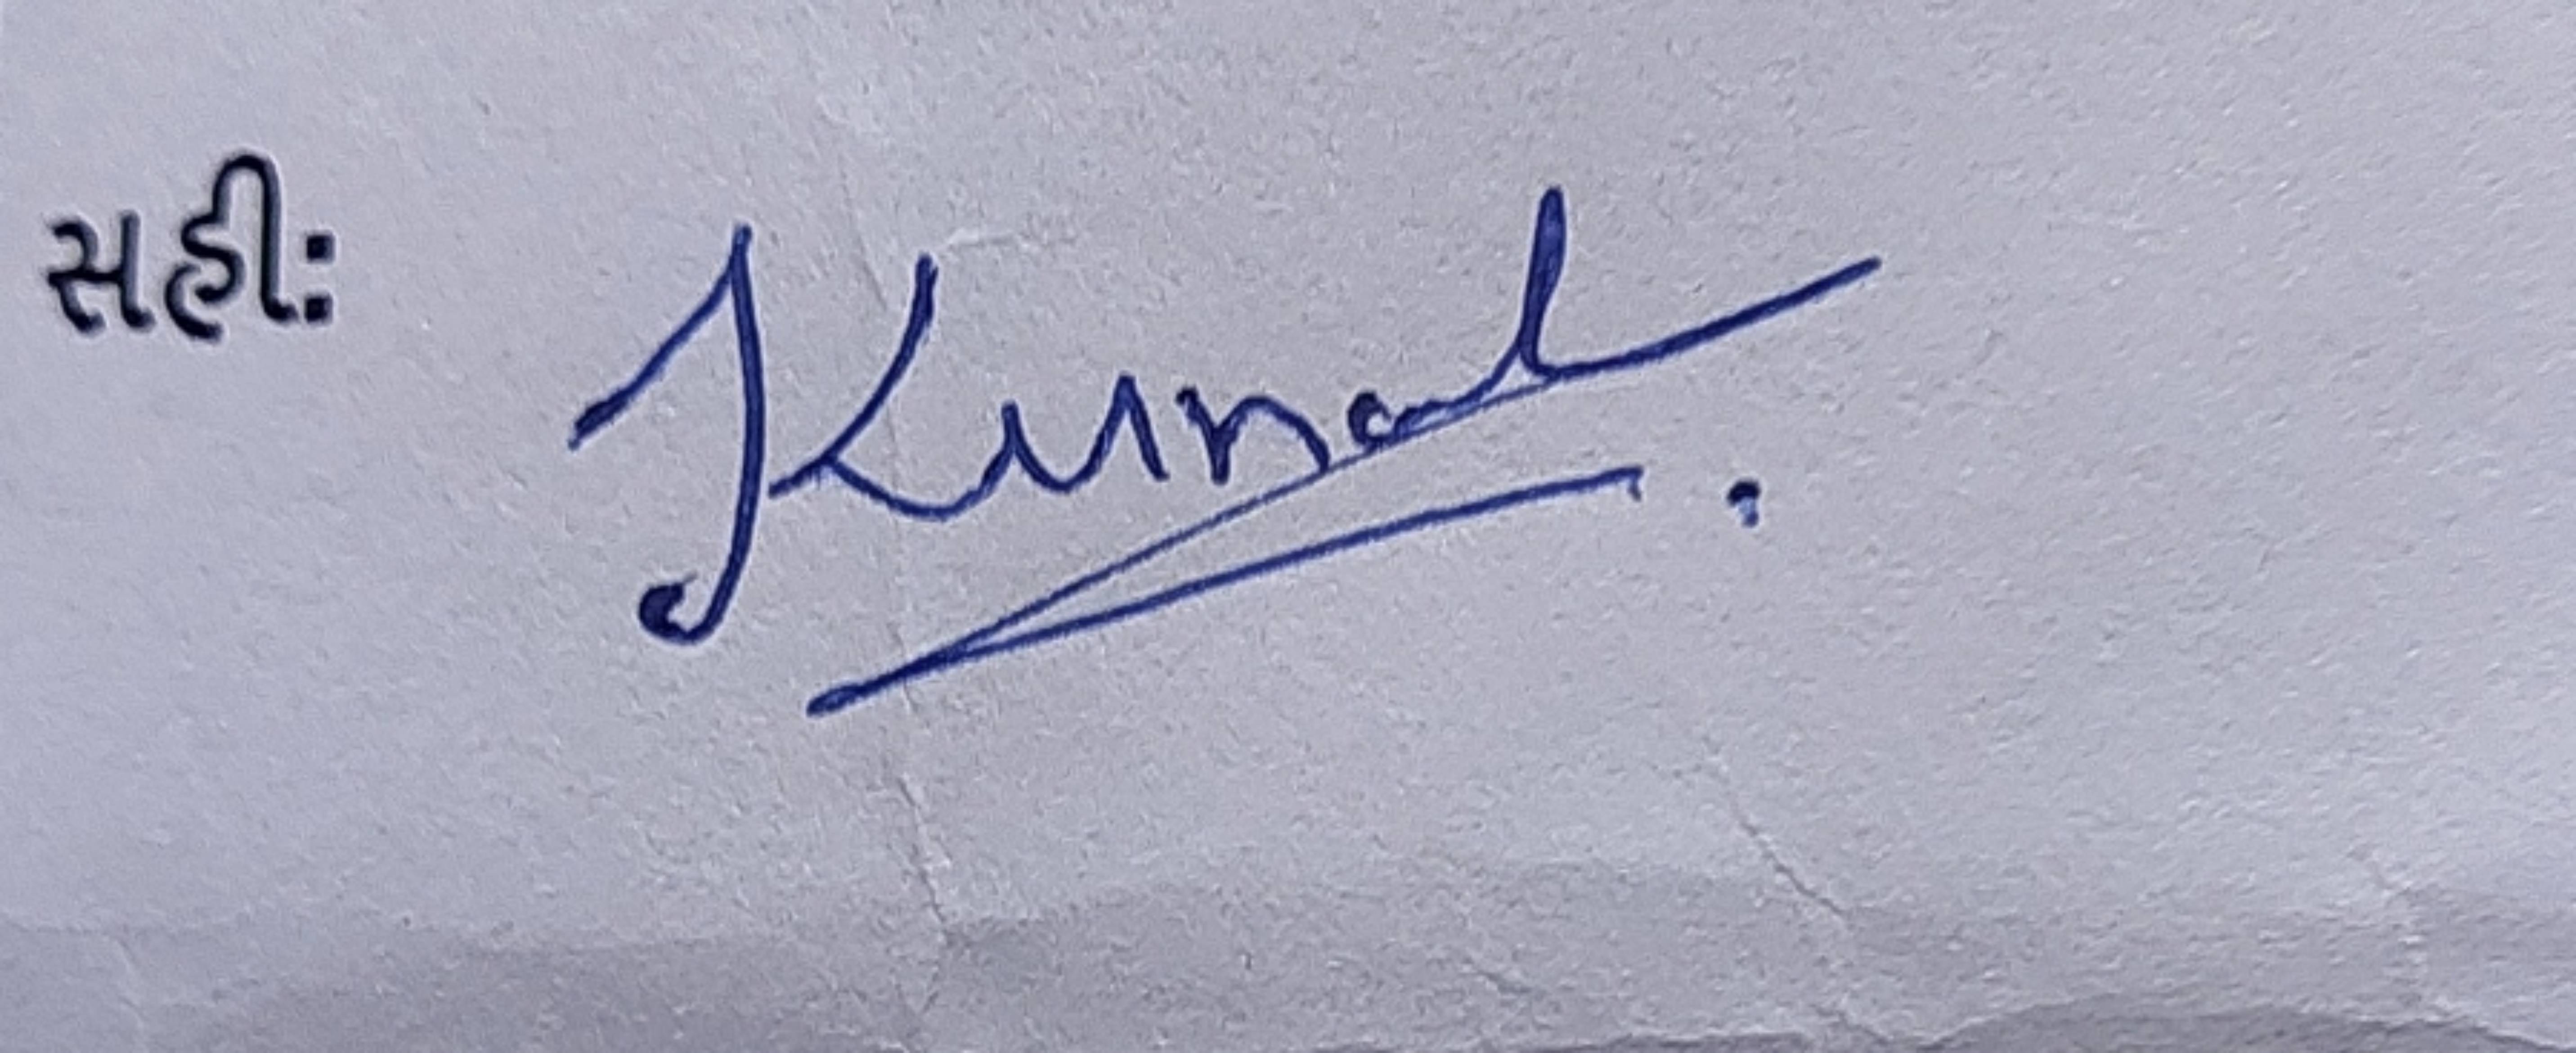 સહીઃ Kunal